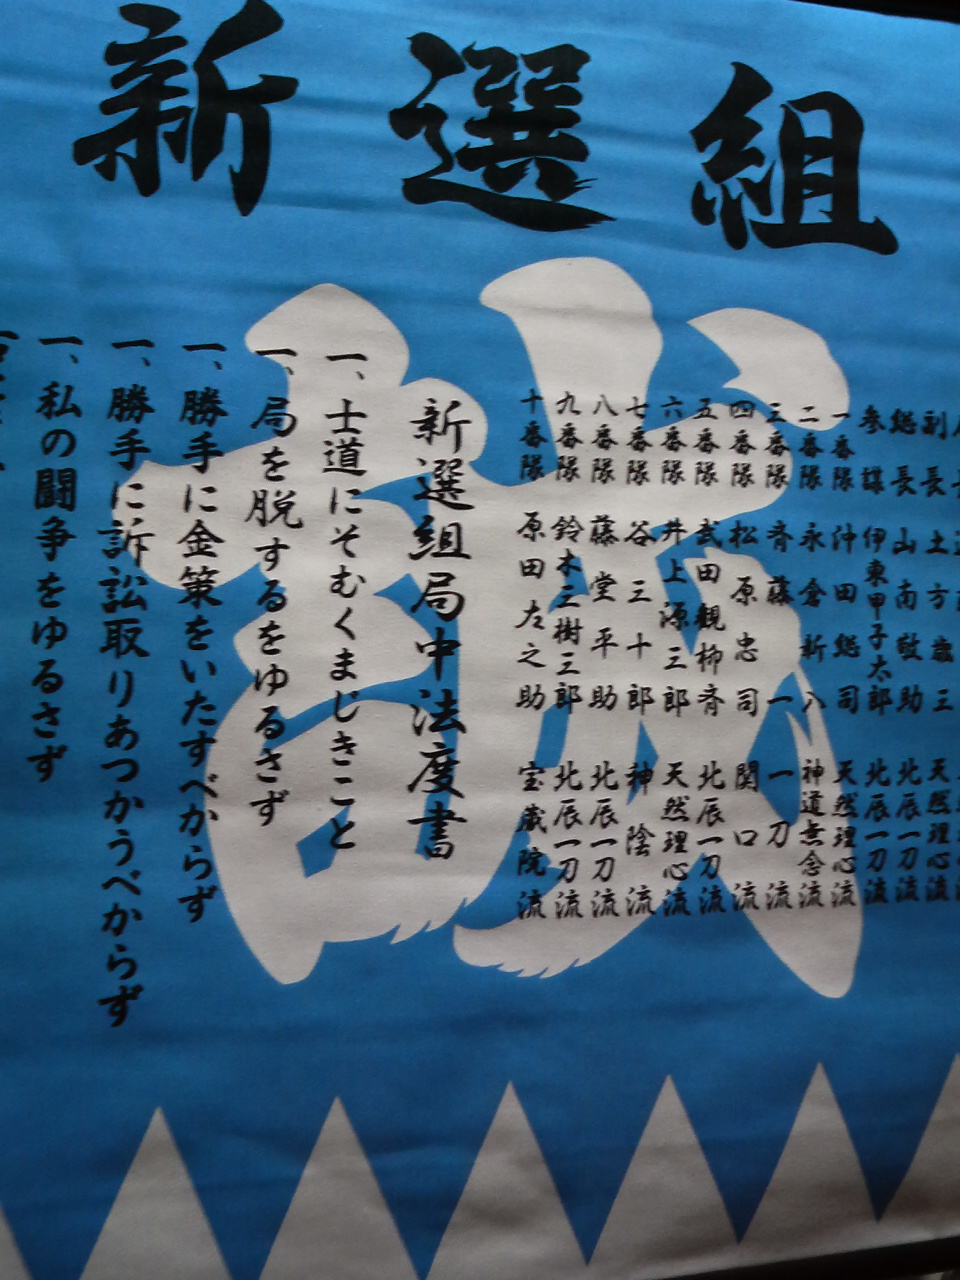 新選組
誠
副長 土方歳三 天然理心流
総長 山南敬助 北辰一刀流
参謀 伊東甲子太郎 北辰一刀流
一番隊 沖田総司 天然理心流
二番隊 永倉新八 神道無念流
三番隊 斉藤一 一刀流
四番隊 松原忠司 関口流
五番隊 武田観柳斉 北辰一刀流
六番隊 井上源三郎 天然理心流
七番隊 谷三十郎 神陰流
八番隊 藤堂平助 北辰一刀流
九番隊 鈴木三樹三郎 北辰一刀流
十番隊 原田左之助 宝蔵院流
新選組局中法度書
一、士道にそむくまじきこと
一、局を脱するをゆるさず
一、勝手に金策をいたすべからず
一、勝手に訴訟取りあつかうべからず
一、私の闘争をゆるさず